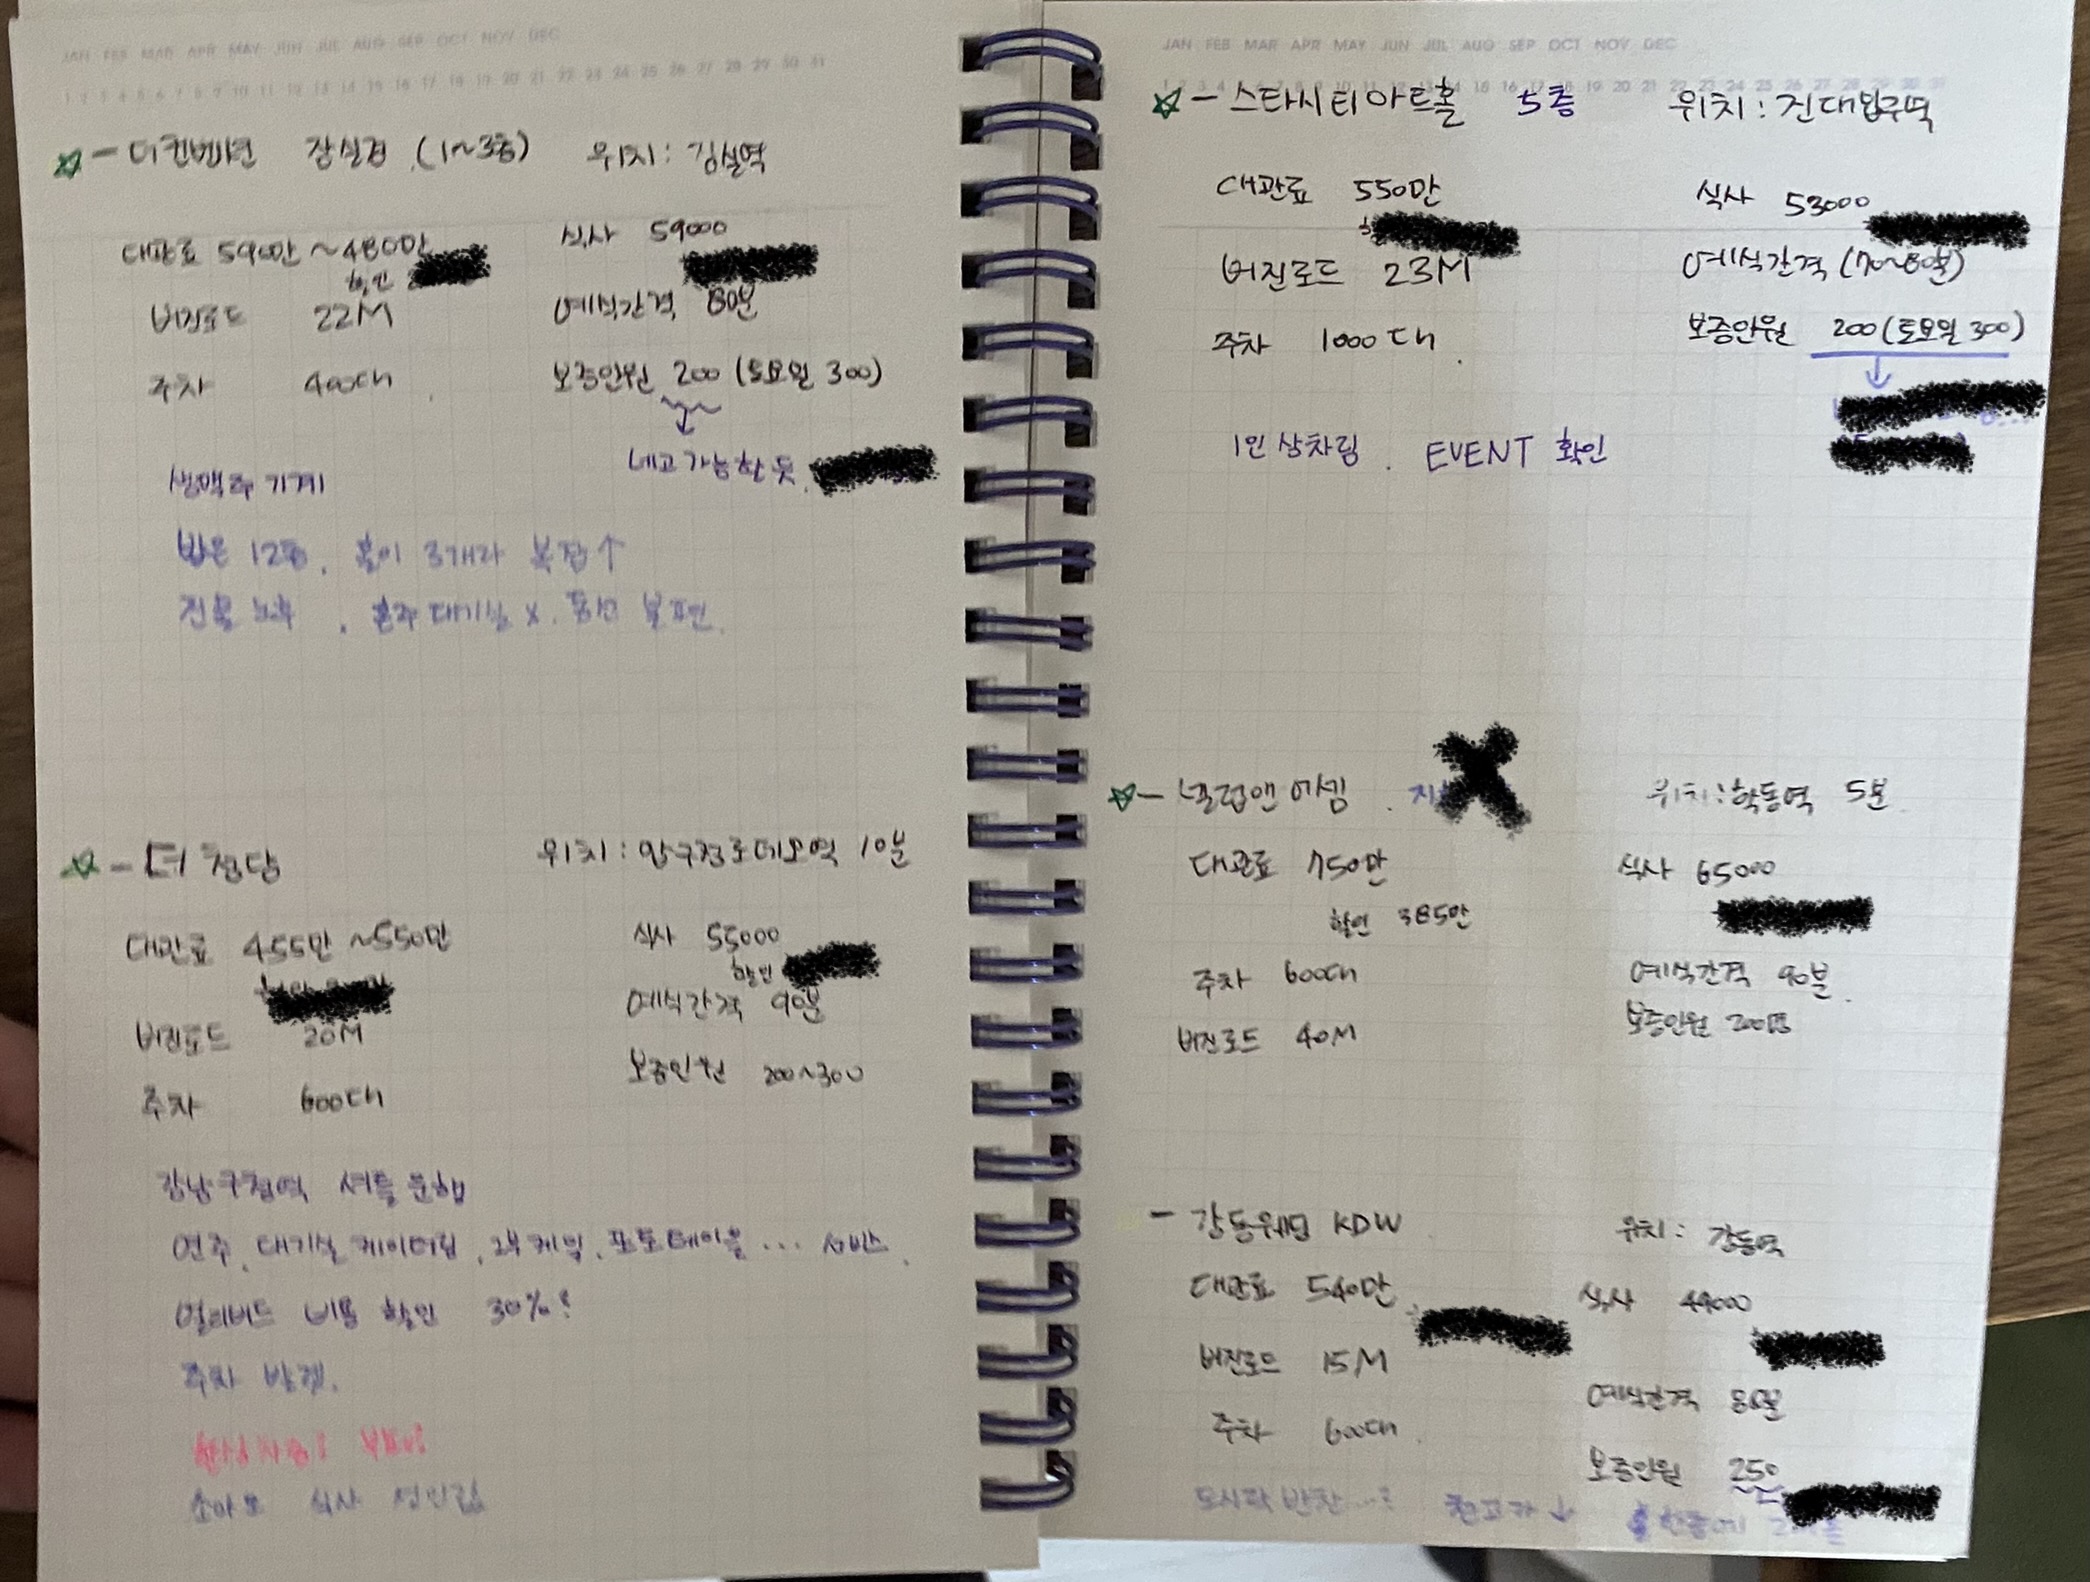 JAN FEB MAR APR MAY JUN JUL AUG SEP OCT NOV DEC
1 2 3 4 5 6 7 8 9 10 11 12 13 14 15 16 17 18 19 20 21 22 23 24 25 26 27 28 29 30 31
- 더컨벤션 잠실점 (1~3층) 위치: 잠실역
대관료 590만~480만 식사 59000
할인
버진로드 22M 예식간격 80분
주차 400대 보증인원 200 (토요일 300)
네고가능한 듯
생맥주 기계
밥은 12층. 홀이 3개라 복잡↑
건물 노후. 혼주대기실 x. 동선 불편.
- 더 청담 위치: 압구정로데오역 10분
대관료 455만~550만 식사 55000
할인
버진로드 20M 예식간격 90분
주차 600대 보증인원 200~300
강남구청역 셔틀 운행
연주. 대기실 케이터링. 2부케잌. 포토테이블... 서비스.
얼리버드 비용 할인 30%?
주차 방켓.
소아도 식사
JAN FEB MAR APR MAY JUN JUL AUG SEP OCT NOV DEC
- 스타시티아트홀 5층 위치: 건대입구역
대관료 550만 식사 53000
버진로드 23M 예식간격 (70~80분)
주차 1000대 보증인원 200 (토요일 300)
1인 상차림. EVENT 확인
- 넬럽앤어셈. 위치: 학동역 5분
대관료 750만 식사 65000
할인 385만
주차 600대 예식간격 90분
버진로드 40M 보증인원 200명
- 강동웨딩 KDW 위치: 강동역
대관료 540만 식사 49000
버진로드 15M 예식간격 80분
주차 600대 보증인원 250
천고가↓